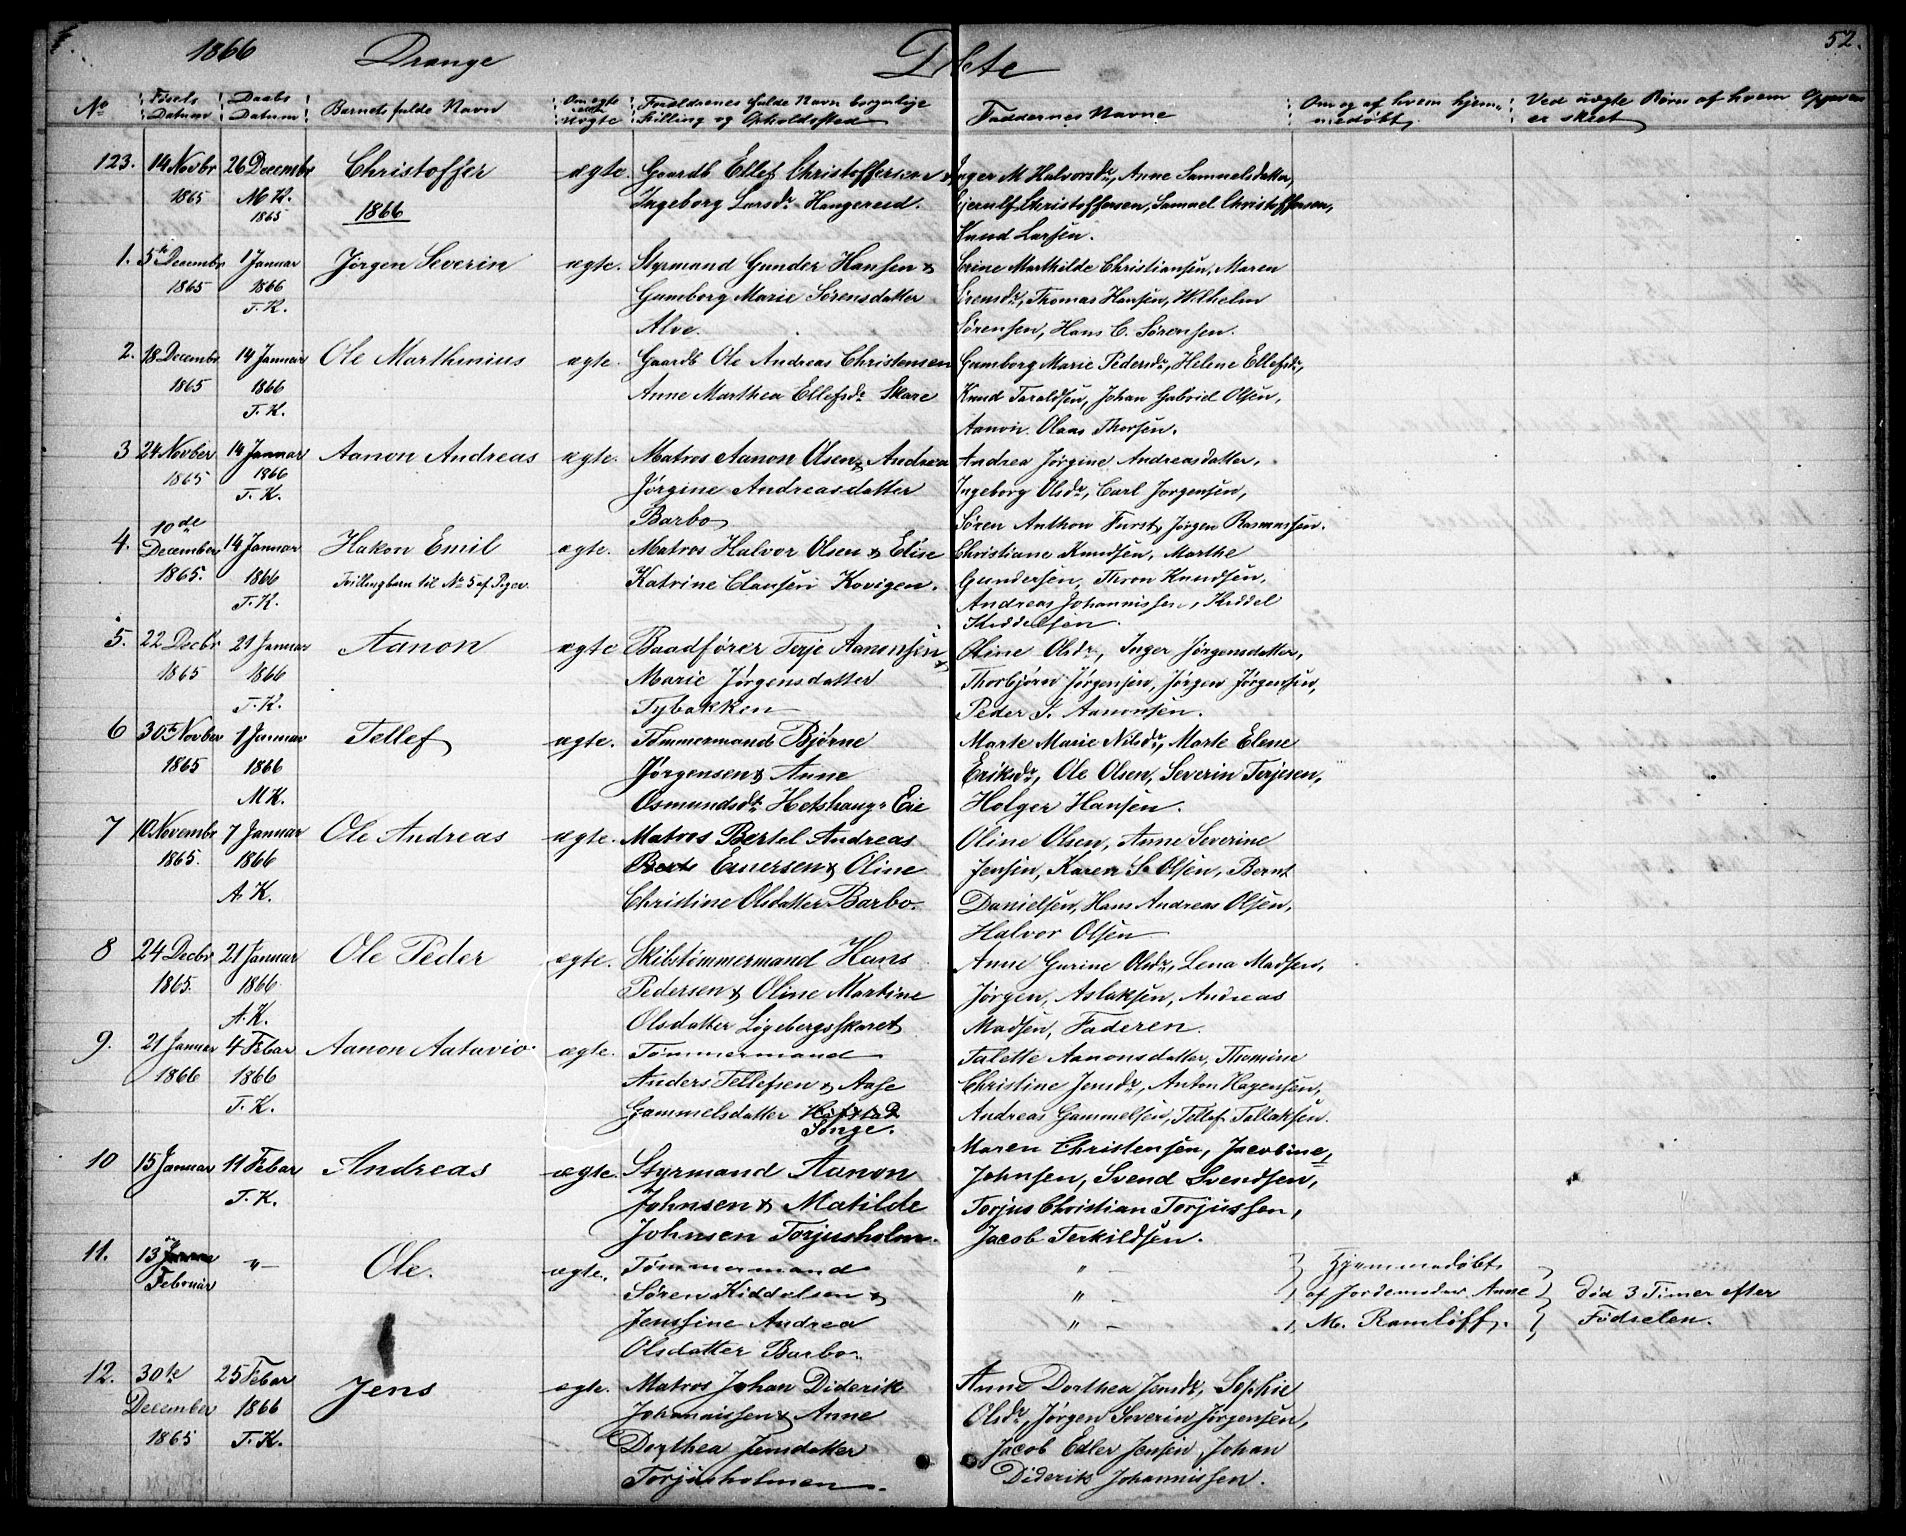 1866 Drange Døbte 52.
No Føsels Datum Daabs Datum Barnets fulde Navn Om egte eller uegte Forældrenes fulde Navn borgerlige Stilling og Opholdssted Faddernes Navne Om og af hvem hjemmedøbt Ved uægte Børn af hvem er skeet
123. 14 Novbr 26 Decembr Christoffer ægte. Gaardb Ellef Christoffersen & Inger M Halvorsdr, Anne Samuelsdatter,
1865 M K. Ingeborg Larsdr Hangereid. Gjerulf Christoffersen, Samuel Christoffersen,
1865 1866 Knud Larsen.
1. 5te Decembr 1 Januar Jørgen Severin ægte. Styrmand Gunder Hansen & Serine Marthilde Christiansen, Maren
1865 1866 Gumborg Marie Sørensdatter Sørensdr, Thomas Hansen, Wilhelm
T. K. Alve. Sørensen, Hans C. Sørensen.
2. 18 Decembr 14 Januar Ole Marthinius ægte. Gaardb Ole Andreas Christensen Gumborg Marie Pedersdr, Helene Ellefsdr,
1865 1866 Anne Marthea Ellefsdr Skare Knud Taraldsen, Johan Gabriel Olsen,
T. K. Aanon Olaas Thorsen.
3 24 Novber 14 Januar Aanon Andreas ægte. Matros Aanon Olsen & Andrea Andrea Jørgine Andreasdatter,
1865 1866 Jørgine Andreasdatter Ingeborg Olsdr, Carl Jørgensen,
T. K. Barbo Søren Anthon Furst, Jørgen Rasmussen.
4. 10de December 14 Januar Hakon Emil ægte. Matros Halvor Olsen & Elise Christiane Knudsen, Marthe
1865. 1866 Tvillingbarn til No 5 af Piger. Katrine Clausen Kovigen. Gundersen, Thron Knudsen,
T. K. Andreas Johannissen, Kiddel
Kiddelsen.
5. 22 Decbr 21 Januar Aanon ægte Baadfører Terje Aanonsen & Oline Olsdr, Inger Jørgensdatter,
1865 1866 Marie Jørgensdatter Thorbjørn Jørgensen, Jørgen Jørgensen,
T. K. Tybakken Peder S. Aanonsen.
6 30te Novber 1 Januar Tellef ægte. Tømmermand Bjørne Marte Marie Nilsdr, Marte Elene
1865 1866 Jørgensen & Anne Eriksdr, Ole Olsen, Severin Terjesen,
M K. Osmundsdt. Hetshaug Eie Holger Hansen.
7 10 Novembr 7 Januar Ole Andreas ægte. Matros Bertel Andreas Oline Olsen, Anne Severine
1865. 1866 Einersen & Oline Jensen, Karen S Olsen, Bernt
A K. Christine Olsdatter Barbo. Danielsen, Hans Andreas Olsen,
Halvor Olsen
8 24 Decbr 21 Januar Ole Peder ægte. Skibstømmermand Hans Anne Gurine Olsdr, Lena Madsen,
1865. 1866 Pedersen & Oline Martine Jørgen Aslaksen, Andreas
A. K. Olsdatter Løgebergsskaret Madsen, Faderen.
9. 21 Januar 4 Febar Aanon Aatavio ægte. Tømmermand Talette Aanonsdatter, Thomine
1866 1866 Anders Tellefsen & Aase Christine Jensdr, Anton Hagensen,
T. K. Gammelsdatter Andreas Gammelsen, Tellef Tellaksen.
Songe.
10 15 Januar 11 Febar Andreas ægte. Styrmand Aanon Maren Christensen, Jacobine,
T. K. Johnsen & Matilde Johnsen, Svend Svendsen,
Johnsen Torjusholm. Torjus Christian Torjussen,
Jacob Terkildsen.
11. 13 Februar " Ole. ægte. Tømmermand " Hjemmedøbt
Søren Kiddelsen & " af Jordemoder Anne Død 3 Timer efter
Jensine Andrea " M. Ramløff. Fødselen.
Olsdatter Barbo.
12. 30te 25 Febar Jens ægte. Matros Johan Diderik Anne Dorthea Jensdr, Sophie
December 1866 Johannissen & Anne Olsdr, Jørgen Severin Jørgensen,
1865 T. K. Dorthea Jensdatter Jacob Edler Jensen, Johan
Torjusholmen. Dideriks Johannissen.